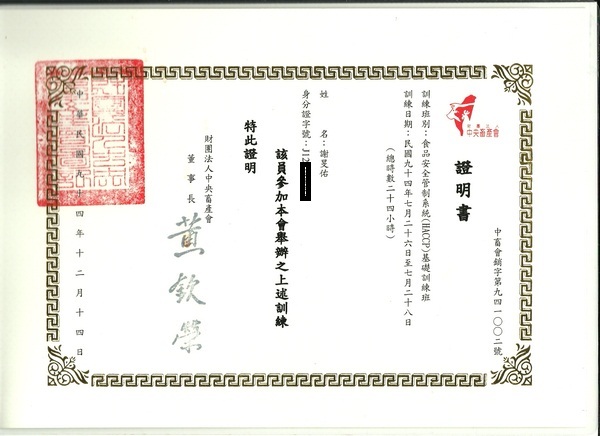 中畜會銷字第九四一○○二號
證明書
財團法人
中央畜產會
訓練班別：食品安全管制系統(HACCP)基礎訓練班
訓練日期：民國九十四年七月二十六日至七月二十八日
（總時數二十四小時）
姓 名：謝旻佑
身分證字號：J12
該員參加本會舉辦之上述訓練
特此證明
財團法人中央畜產會
董事長 欽榮
中華民國九十四年十二月十四日